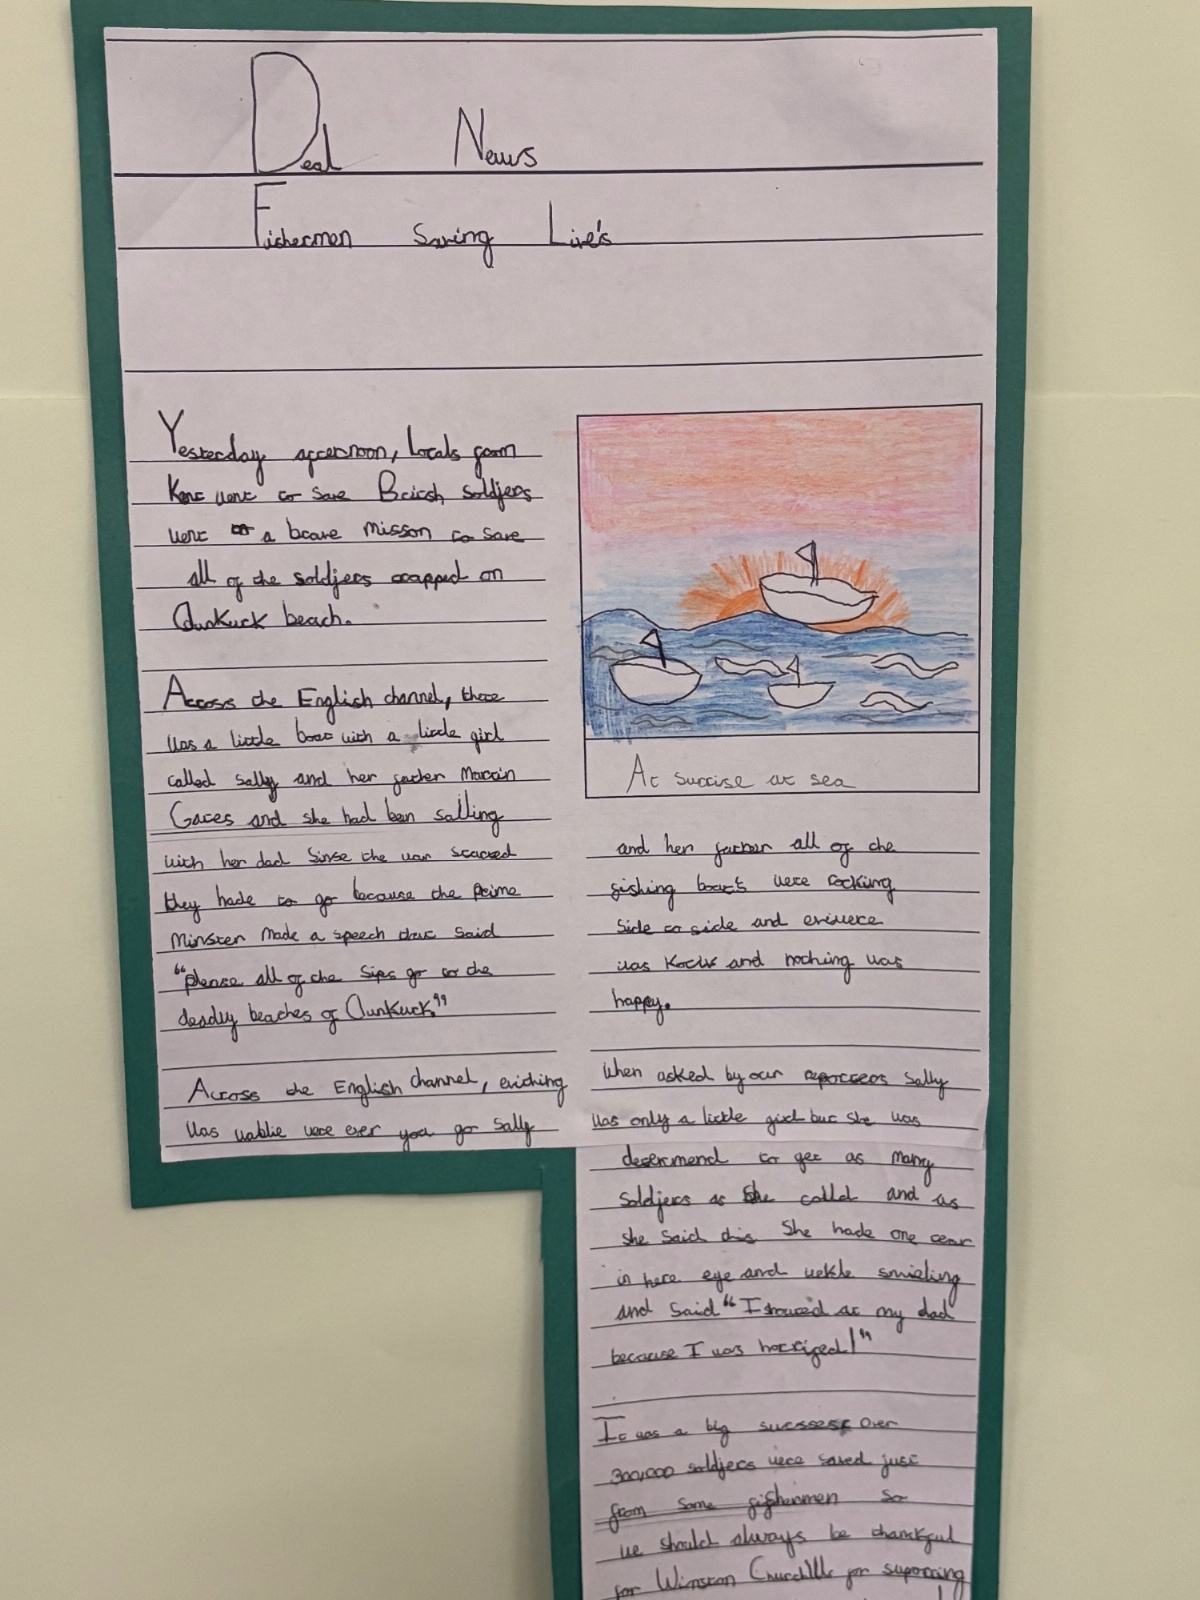 Deal News
Fishermen Saving Live's
Yesterday afternoon, locals from
Kent went to save British soldjers
went a brave misson to save
all of the soldjers trapped on
Dunkuck beach.
Across the English channel, there
was a little boat with a little girl
called Sally and her father Martin
Gates and she had ben salling
with her dad Sinse the war started
they hade to go because the Prime
Minster made a speech that said
"please all of the Sips go to the
deadly beaches of Dunkuck"
Across the English channel, eviching
was were ever you go Sally
At sunrise at sea
and her father all of the
fishing boats were rocking
side to side and
was and nothing was
happy.
When asked by our reporters Sally
was only a little girl but she was
determend to get as many
soldjers as She colld and as
she said this She hade one tear
in here eye and smieling
and said "I at my dad
because I was horrifed!"
It was a big success over
300,000 soldjers were saved just
from some fishermen So
we should always be thankful
for Winston for suporting